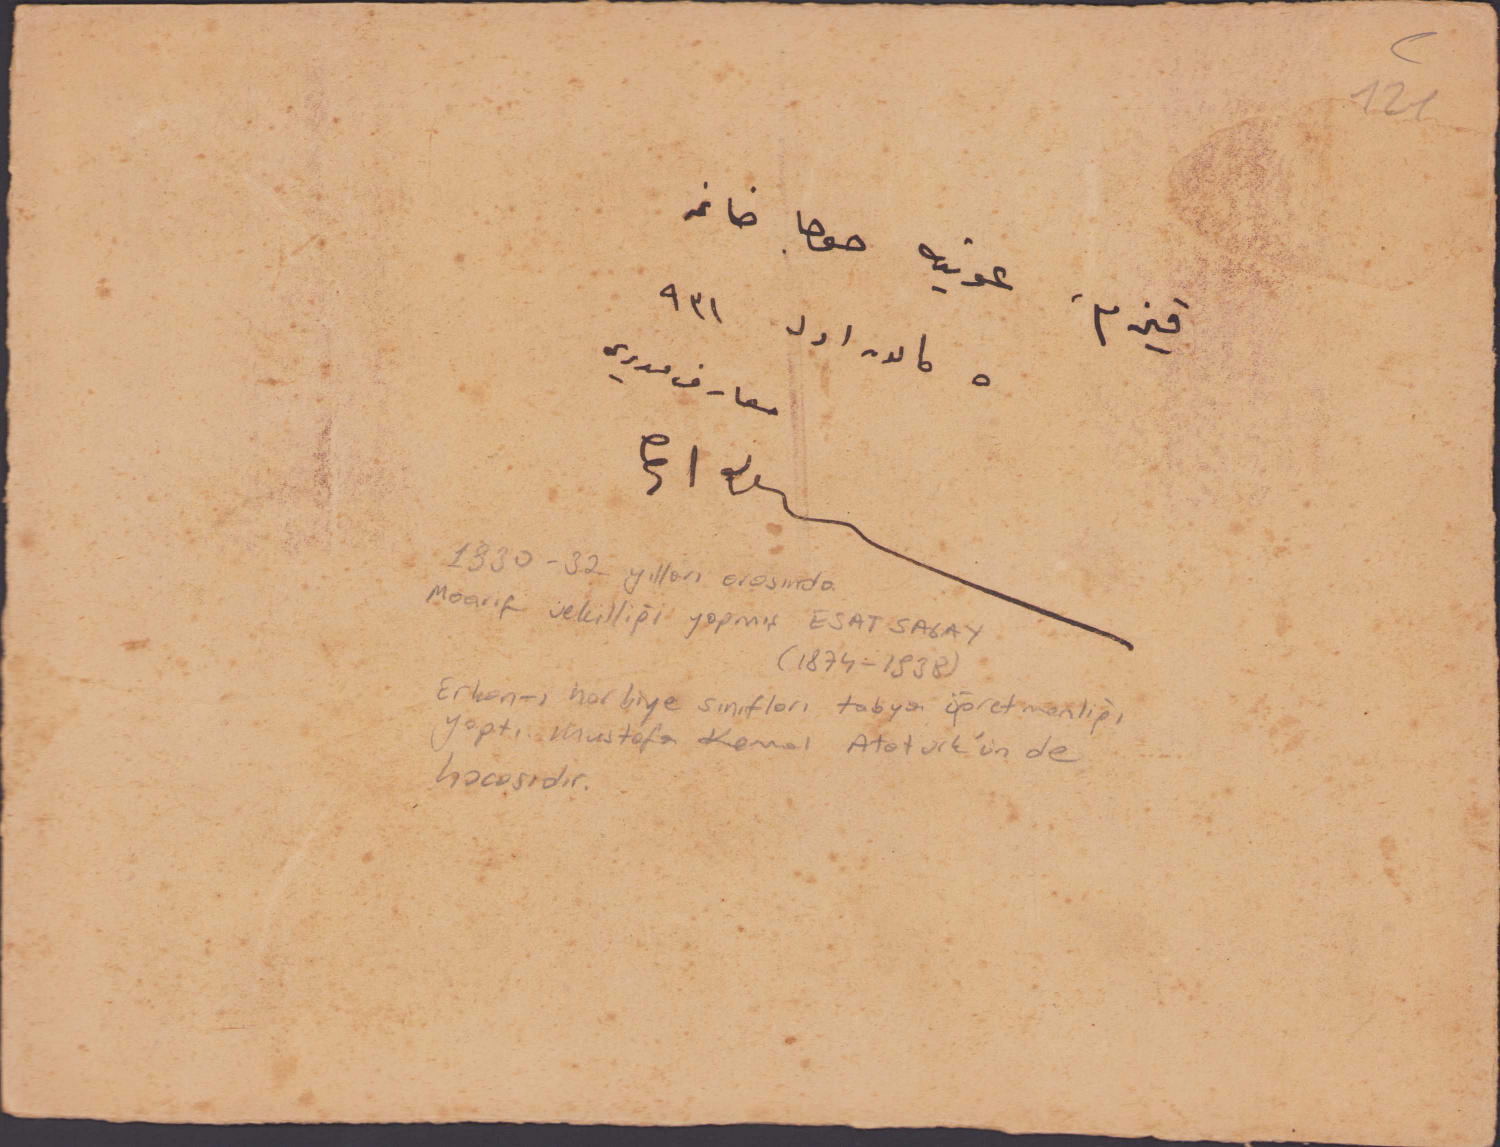 121
قیزم عونیه خوجا خانمه
٥ كانون اول ٩٣١
معارف مدیری
1930-32 yılları arasında
Maarif vekilliği yapmış ESAT SAGAY
(1874-1938)
Erkan-ı harbiye sınıfları tabya öğretmenliği
yaptı. Mustafa Kemal Atatürk'ün de
hocasıdır.